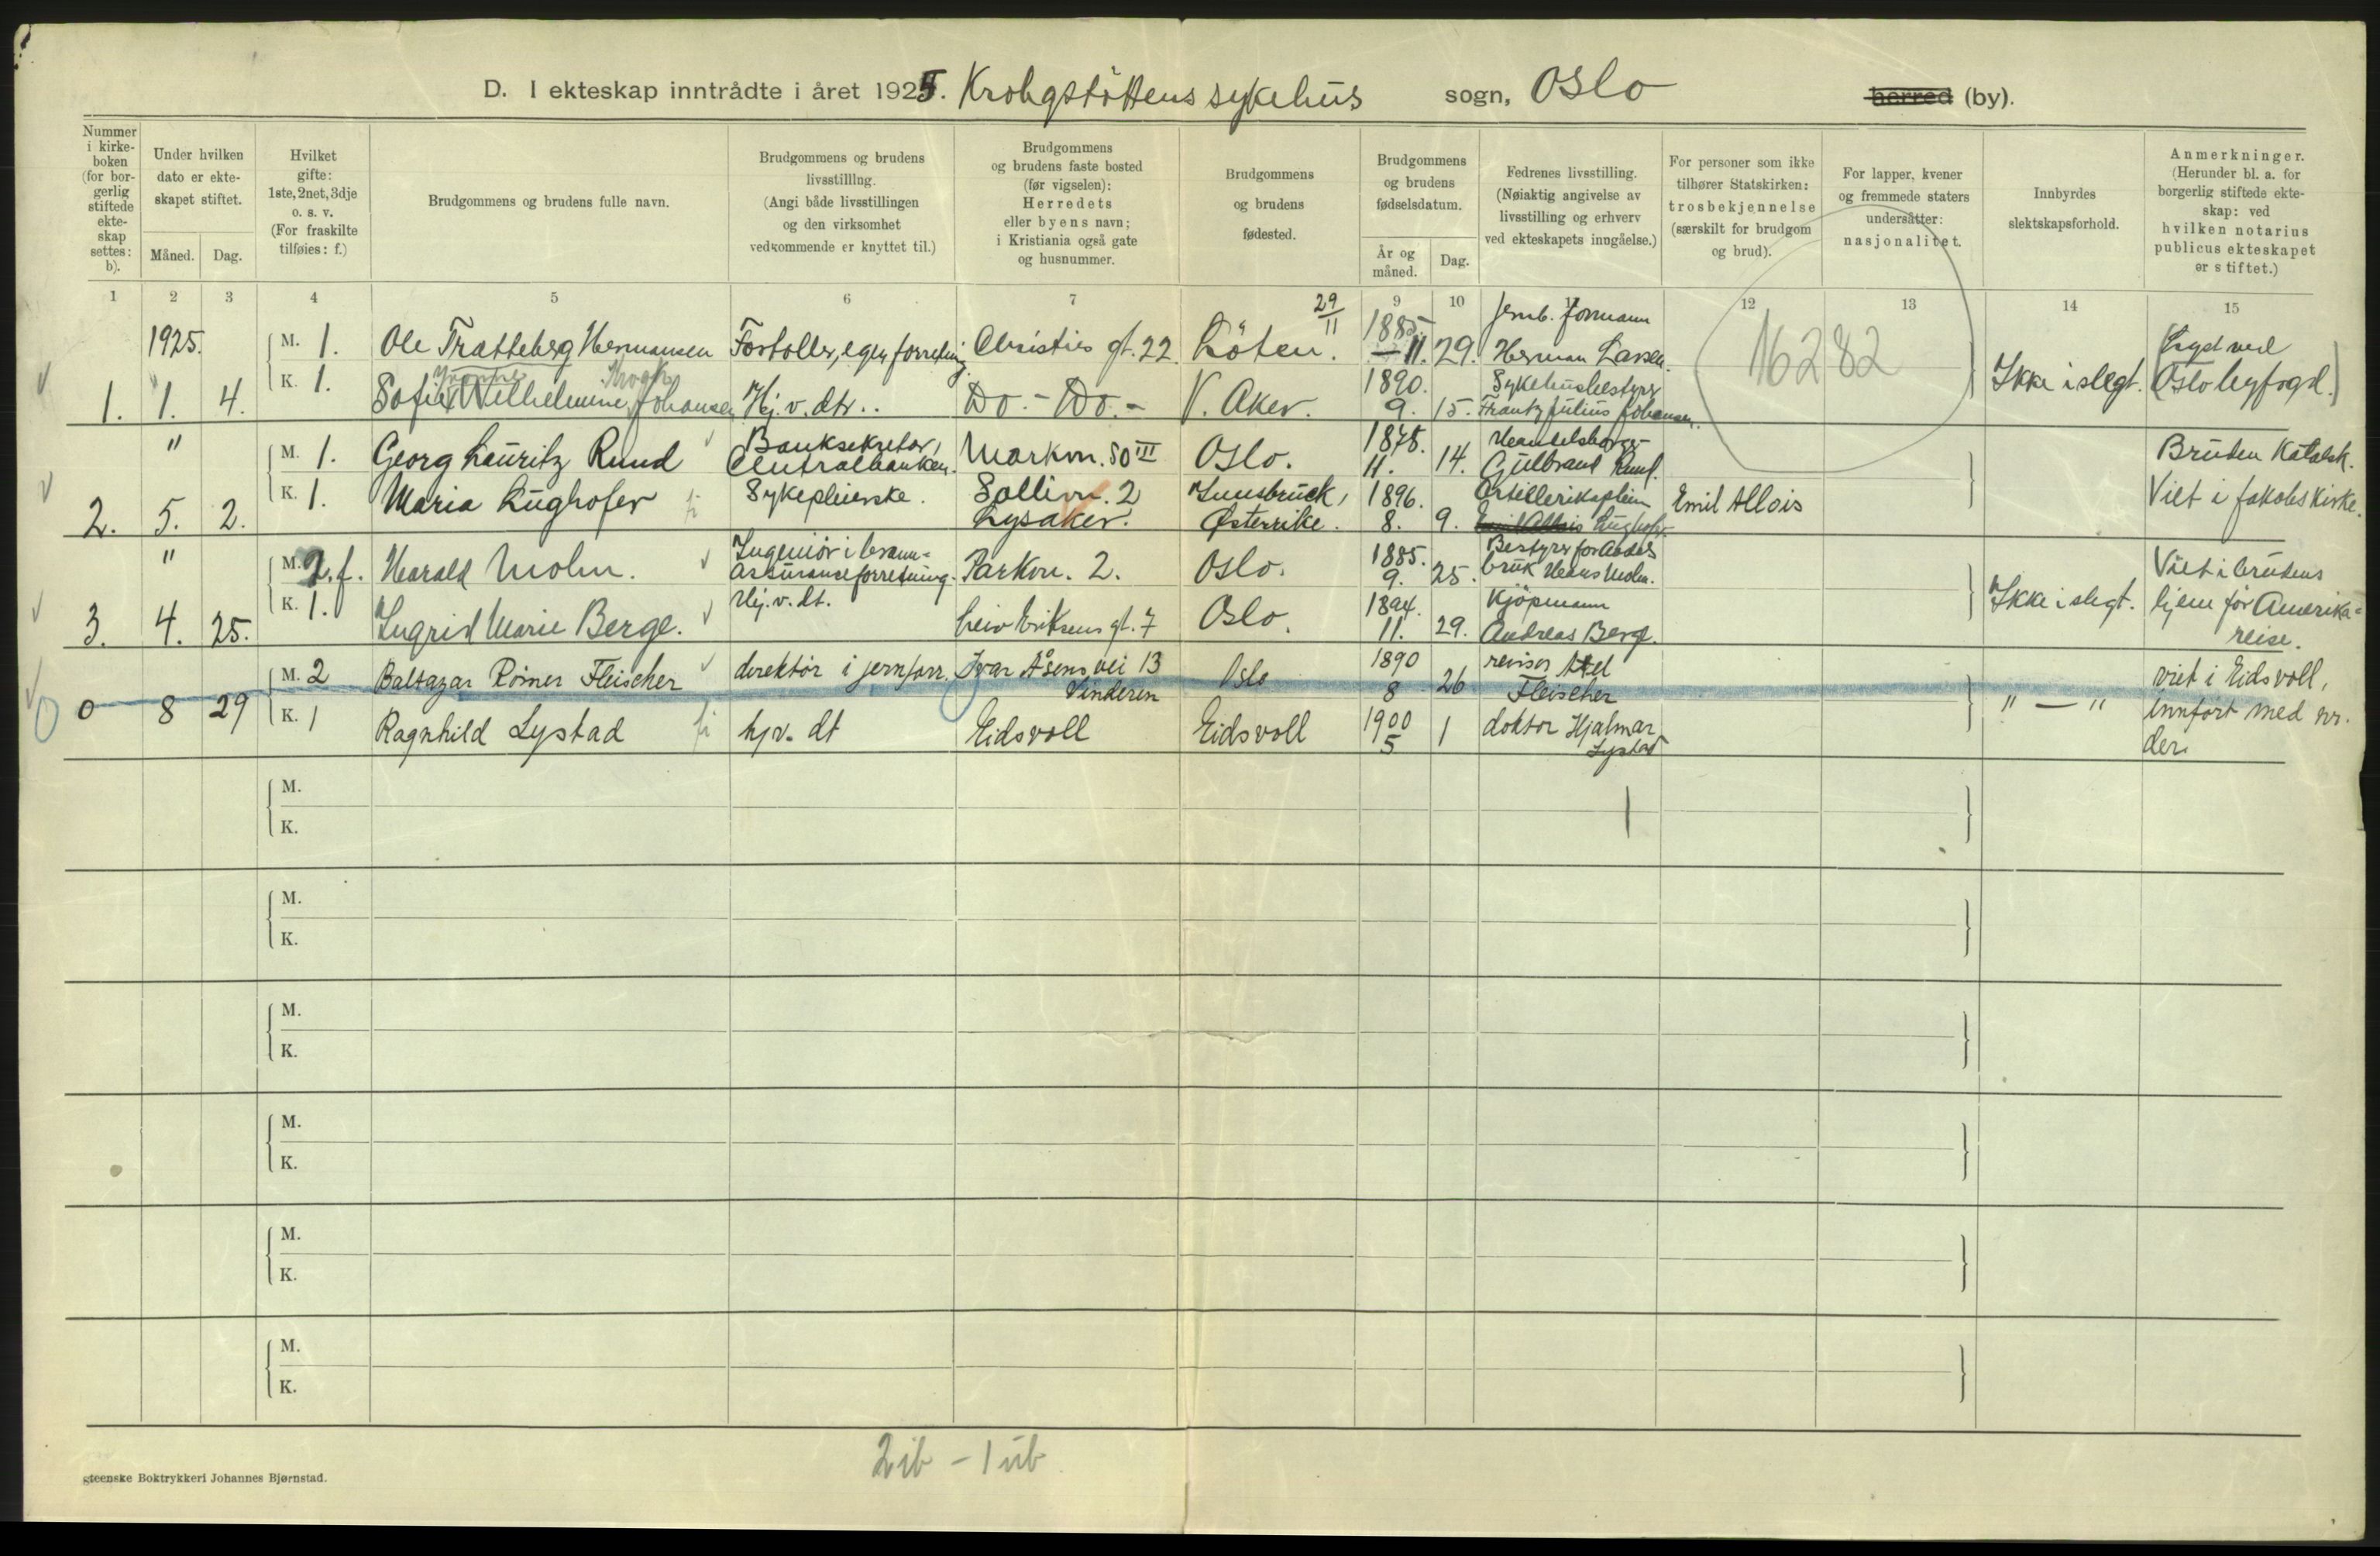 D. I ekteskap inntrådte i året 1925. Krohgstøttens sykehus sogn, Oslo herred (by).
Nummer i kirke-boken (for bor-gerlig stiftede ekte-skap settes: b).
Under hvilken dato er ekte-skapet stiftet.
Måned. Dag.
Hvilket gifte: 1ste, 2net, 3dje o. s. v. (For fraskilte tilføies: f.)
Brudgommens og brudens fulle navn.
Brudgommens og brudens livsstilling. (Angi både livsstillingen og den virksomhet vedkommende er knyttet til.)
Brudgommens og brudens faste bosted (før vigselen): Herredets eller byens navn; i Kristiania også gate og husnummer.
Brudgommens og brudens fødested.
Brudgommens og brudens fødselsdatum.
År og måned. Dag.
Fedrenes livsstilling. (Nøiaktig angivelse av livsstilling og erhverv ved ekteskapets inngåelse.)
For personer som ikke tilhører Statskirken: trosbekjennelse (særskilt for brudgom og brud).
For lapper, kvener og fremmede staters undersåtter: nasjonalitet.
Innbyrdes slektskapsforhold.
Anmerkninger. (Herunder bl. a. for borgerlig stiftede ekte-skap: ved hvilken notarius publicus ekteskapet er stiftet.)
1 2 3 4 5 6 7 8 9 10 11 12 13 14 15
1925. M. 1. Ole Tratteberg Hermansen Fortoller, egen forretning. Christies gt. 22. Löten. 29/11 1885 - 11. 29. Jernb. formann Herman Larsen. 16282
1. 1. 4. K. 1. Sofie Wilhelmine Johansen Hj. v. dtr. Do. - Do. - V. Aker. 1890. 9. 15. Sykehusbestyrer Frantz Julius Johansen. Ikke i slegt. Lyst ved Oslo byfogd.
" M. 1. Georg Lauritz Ruud Banksekretær, Centralbanken. Markvn. 50 III Oslo. 1878. 11. 14. Gulbrand Ruud. Bruden Katolsk.
2. 5. 2. K. 1. Maria Lughofer Sykepleierske. Sollivn. 2 Lysaker. Innsbruck, Østerrike. 1896. 8. 9. Emil Allois Lughofer. Emil Allois Viet i Jakobs kirke.
" M. 2. f. Harald Mohn. Ingeniör i brann-assuranseforretning. Parkvn. 2. Oslo. 1885. 9. 25. Bestyrer for Andelsbruk Hans Mohn. Viet i brudens
3. 4. 25. K. 1. Ingrid Marie Berge. Hj. v. dt. Leiv Eriksens gt. 7 Oslo. 1894. 11. 29. Kjöpmann Andreas Berge. Ikke i slegt. hjem för Amerika-reise.
M. 2 Baltazar Rømer Fleischer direktør i jernforr. Ivar Åsens vei 13 Vinderen Oslo 1890 8 26 revisor Axel Fleischer viet i Eidsvoll,
0 8 29 K. 1 Ragnhild Lystad hjv. dt Eidsvoll Eidsvoll 1900 5 1 doktor Hjalmar Lystad " — " innført med nr. der.
M.
K.
M.
K.
M.
K.
M.
K.
M.
K.
M.
K.
2 ib - 1 ub
gteenske Boktrykkeri Johannes Bjørnstad.